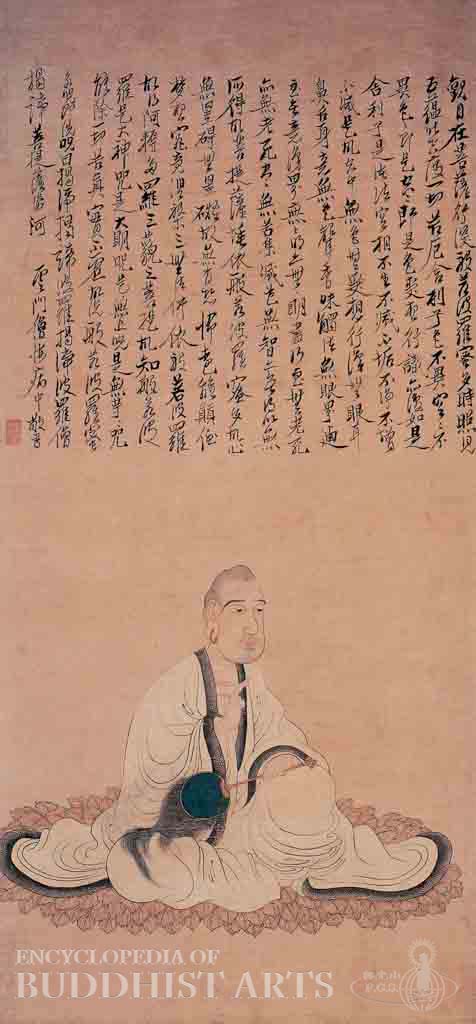 觀自在菩薩行深般若波羅蜜多時照見
五蘊皆空度一切苦厄舍利子色不異空空不
異色色即是空空即是色受想行識亦復如是
舍利子是諸法空相不生不滅不垢不淨不增
不減是故空中無色無受想行識無眼耳
鼻舌身意無色聲香味觸法無眼界迺
至無意識界無無明亦無無明盡乃至無老死
亦無老死盡無苦集滅道無智亦無得以無
所得故菩提薩埵依般若波羅蜜多故心
無罣礙罣礙故無有恐怖遠離顛倒
夢想究竟涅槃三世諸佛依般若波羅
故得阿耨多羅三藐三菩提故知般若波
羅是大神咒是大明咒是無上咒是無等咒
能除一切苦真實不虛故說般若波羅蜜
多咒即說咒曰揭諦揭諦波羅揭諦波羅僧
揭諦菩提薩婆訶 雲門僧 病中敬書
ENCYCLOPEDIA OF
BUDDHIST ARTS
佛光山
F.G.S.